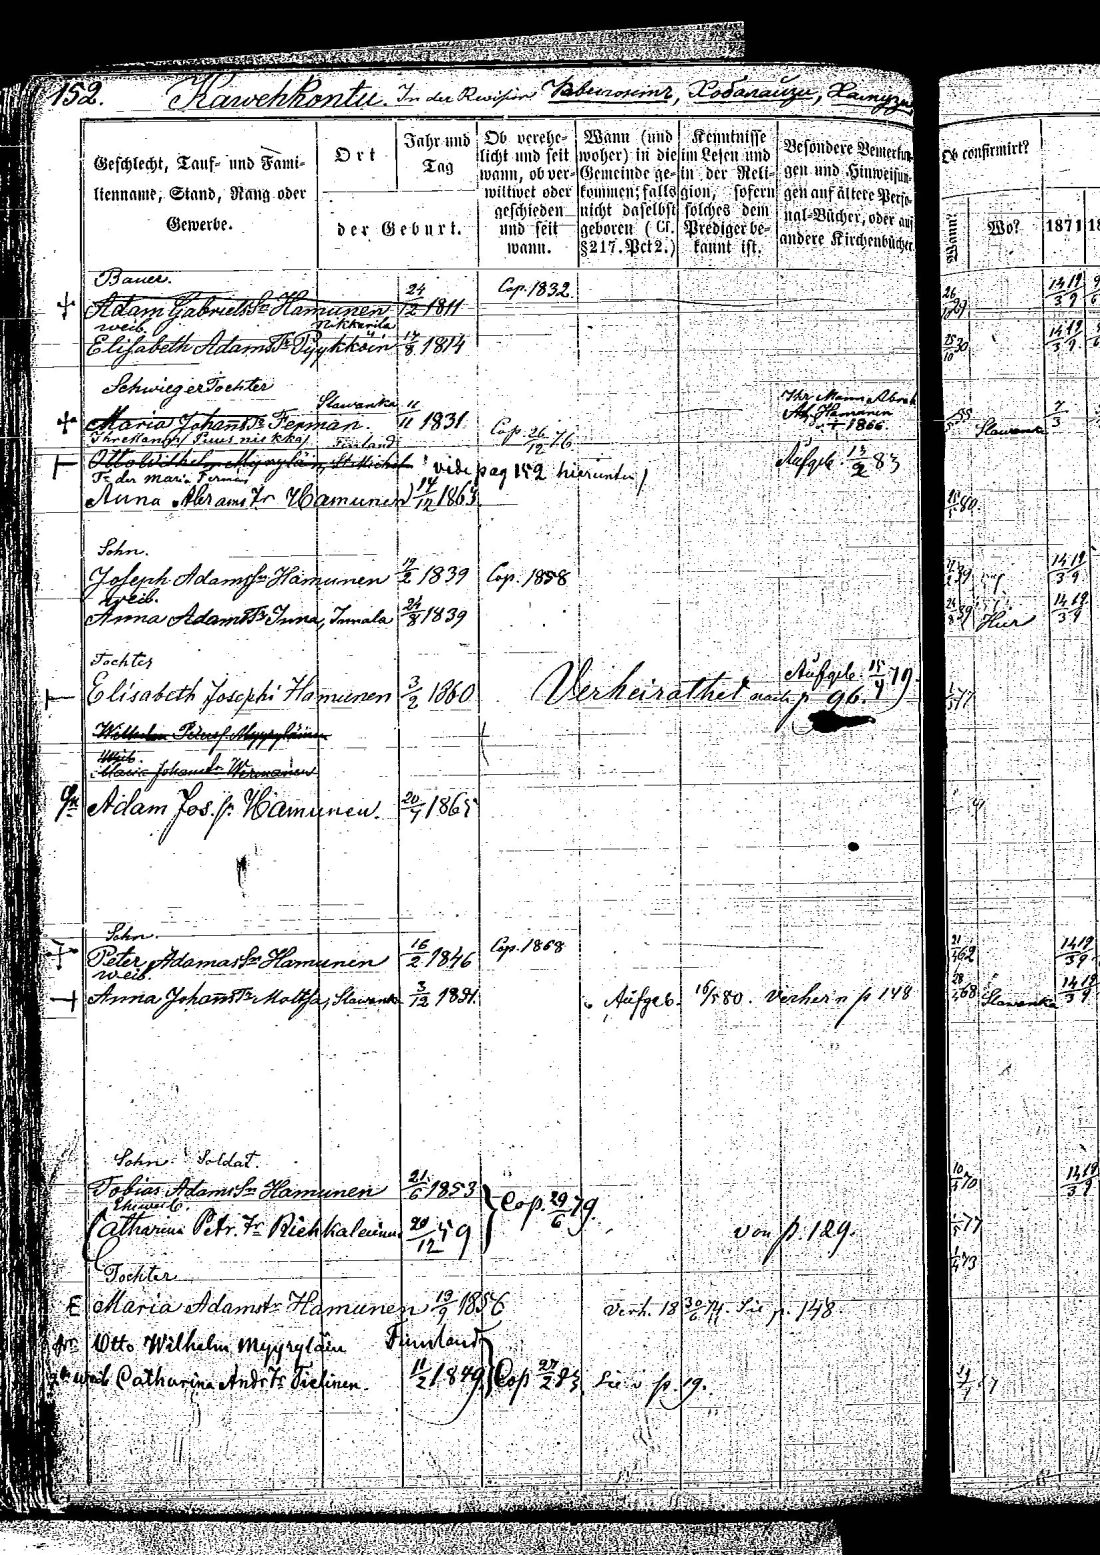 152. Kawehkontu. In der Revision Кавелохта, Хобалаизи, Хамузи
Geschlecht, Tauf- und Fami-
lienname, Stand, Rang oder
Gewerbe.
Ort
der Geburt.
Jahr und
Tag
Ob verehe-
licht und seit
wann, ob ver-
wittwet oder
geschieden
und seit
wann.
Wann (und
woher) in die
Gemeinde ge-
kommen; falls
nicht daselbst
geboren (Cf.
§217. Pct 2.)
Kenntnisse
im Lesen und
in der Reli-
gion, sofern
solches dem
Prediger be-
kannt ist.
Besondere Bemerkun-
gen und Hinweisun-
gen auf ältere Perso-
nal-Bücher, oder auf
andere Kirchenbücher
Ob confirmirt?
Wann?
Wo?
1871
Bauer.
Adam Gabriels Sn Hamunen 24/12 1811 Cop. 1832. 14 19/3 9
weib. Nikkarila
Elisabeth Adams Tr Pyykköin 17/8 1814 25/10 30 14 19/3 9
Schwieger Tochter
Maria Johans Tr Ferman. Slawanka 11/11 1831 Cop. 26/12 76 Ihr Mann Abrah Ad. Hamunen 1866 Slawanka 7/3
Ihr Mann Finland
Otto Wilhelm Myyryläin, St. Michel vide pag 152 hierunter) Aufgeb. 13/2 83
Tr der Maria Ferman
Anna Abrams Tr Hamunen 14/12 1863 80
Sohn.
Joseph Adams Sn Hamunen 17/2 1839 Cop. 1858 14 19/3 9
weib.
Anna Adams Tr Inna, Inmala 24/8 1839 Hier 14 19/3 9
Tochter
Elisabeth Josephi Hamunen 3/2 1860 Verheirathet nach p 96. Aufgeb. 15/4 79. 77
Maria Johans Tr
Adam Jos. Sn Hamunen. 20/4 1865
Sohn.
Peter Adamas Sn Hamunen 16/2 1846 Cop. 1868 14 19/3 9
weib.
Anna Johans Tr Moltsa, Slawanka 3/12 1851. Aufgeb. 16/5 80. Verher n p 148 68 Slawanka 14 19/3 9
Sohn Soldat.
Tobias Adams Sn Hamunen 21/6 1853 Cop. 29/6 79. 70 14 19/3 9
Eheweib.
Catharina Petr. Tr Riehkaleinen 20/12 59 von p. 129. 77
Tochter
E Maria Adams Tr Hamunen 19/9 1856 Verh. 18 30/6 74. Sie p. 148.
Otto Wilhelm Myyryläin Finnland
weib Catharina Andr Tr Tielinen. 11/2 1849 Cop 27/2 83 Sie v p. 19.